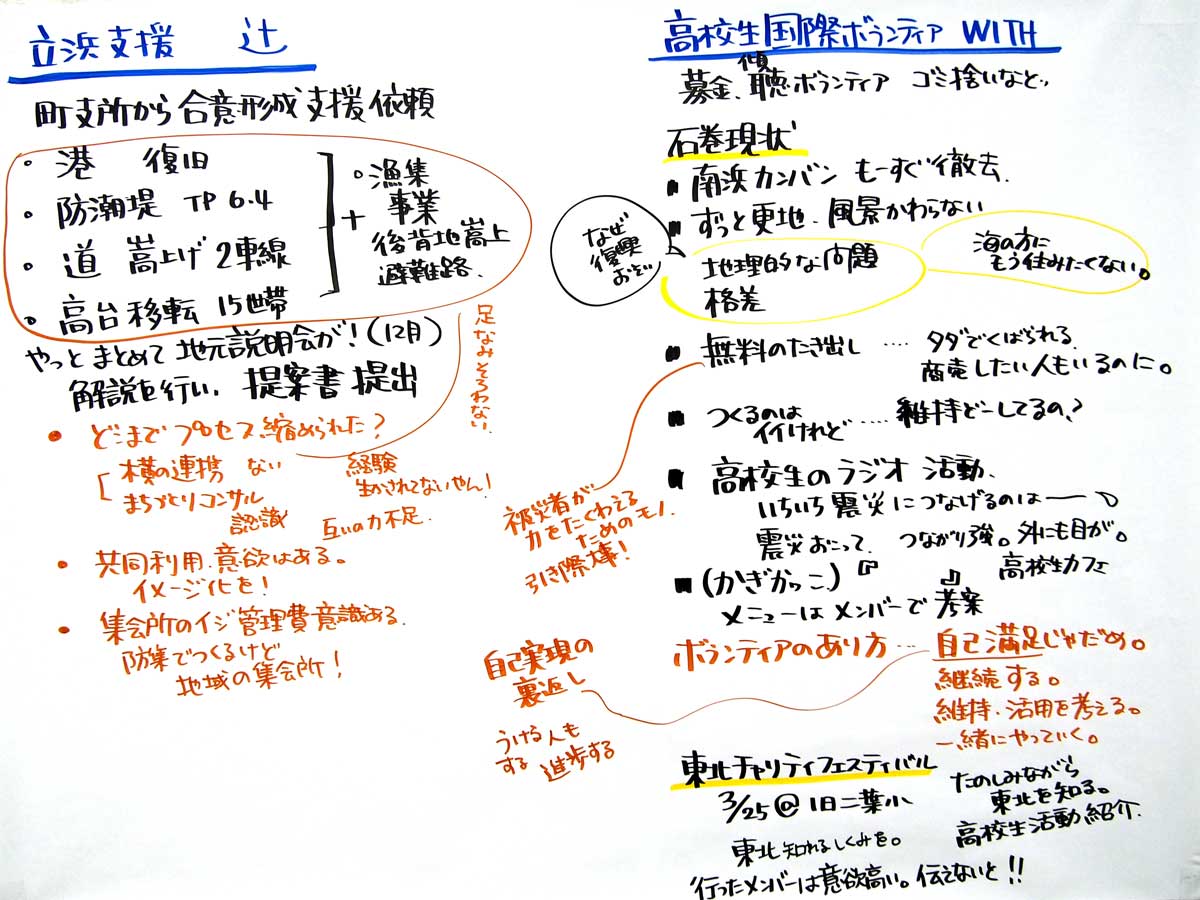 立浜支援 辻
町支所から合意形成支援依頼
。港 復旧
・防潮堤 TP 6.4
・道 嵩上げ 2車線
・高台移転 15世帯
+
。漁集
事業
後背地嵩上
避難路.
やっとまとめて地元説明会が!(12月)
解説を行い、提案書提出
足なみそろわない
・どこまでプロセス縮められた?
横の連携 ない
まちづくりコンサル
認識
経験
生かされてないやん!
互いの力不足.
・共同利用.意欲はある。
イメージ化を!
・集会所のイジ管理費意識ある.
防集でつくるけど
地域の集会所!
高校生国際ボランティア WITH
募金、傾聴ボランティア ゴミ捨いなど..
石巻現状
■南浜カンバン もーすぐ徹去.
■ずっと更地.風景かわらない
なぜ
復興
おそい
地理的な問題
格差
海の方に
もう住みたくない。
■無料のたき出し ‥‥ タダでくばられる.
商売したい人もいるのに。
■つくるのは
イイけれど ‥‥ 維持どーしてるの?
■高校生のラジオ活動、
いちいち震災につなげるのは―
震災おこって、つながり強。外にも目が。
高校生カフェ
■(かぎかっこ)『 』
メニューはメンバーで考案
被災者が
力をたくわえる
ためのモノ.
引き際大事!
ボランティアのあり方 ‥‥ 自己満足じゃだめ。
継続する。
維持・活用を考える。
一緒にやっていく。
自己実現の
裏返し
うける人も
する
進歩する
東北チャリティフェスティバル
3/25@旧二葉小
東北知れるしくみを。
たのしみながら
東北を知る。
高校生活動紹介.
行ったメンバーは意欲高い。伝えないと!!